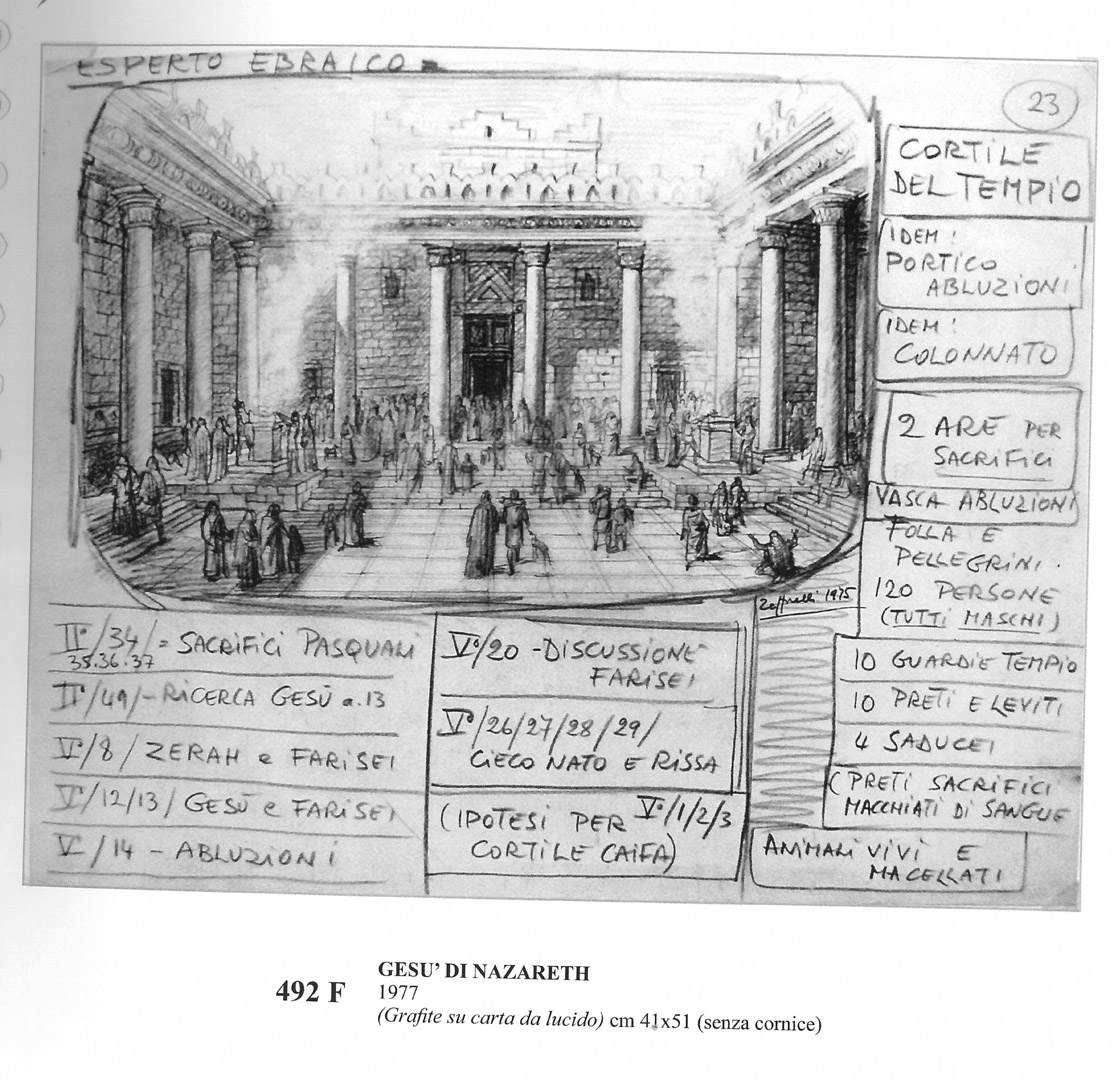 ESPERTO EBRAICO =
23
CORTILE
DEL TEMPIO
IDEM:
PORTICO
ABLUZIONI
IDEM:
COLONNATO
2 ARE PER
SACRIFICI
VASCA ABLUZIONI
FOLLA E
PELLEGRINI.
120 PERSONE
(TUTTI MASCHI)
10 GUARDIE TEMPIO
10 PRETI E LEVITI
4 SADUCEI
(PRETI SACRIFICI
MACCHIATI DI SANGUE
ANIMALI VIVI E
MACELLATI
Zeffirelli 1975
II°/34/= SACRIFICI PASQUALI
35.36.37
II°/49/-RICERCA GESÙ a.13
V°/8/ ZERAH e FARISEI
V°/12/13/ GESÙ e FARISEI
V°/14 - ABLUZIONI
V°/20 -DISCUSSIONE
FARISEI
V°/26/27/28/29/
CIECO NATO E RISSA
(IPOTESI PER V°/1/2/3
CORTILE CAIFA)
492 F
GESU' DI NAZARETH
1977
(Grafite su carta da lucido) cm 41x51 (senza cornice)